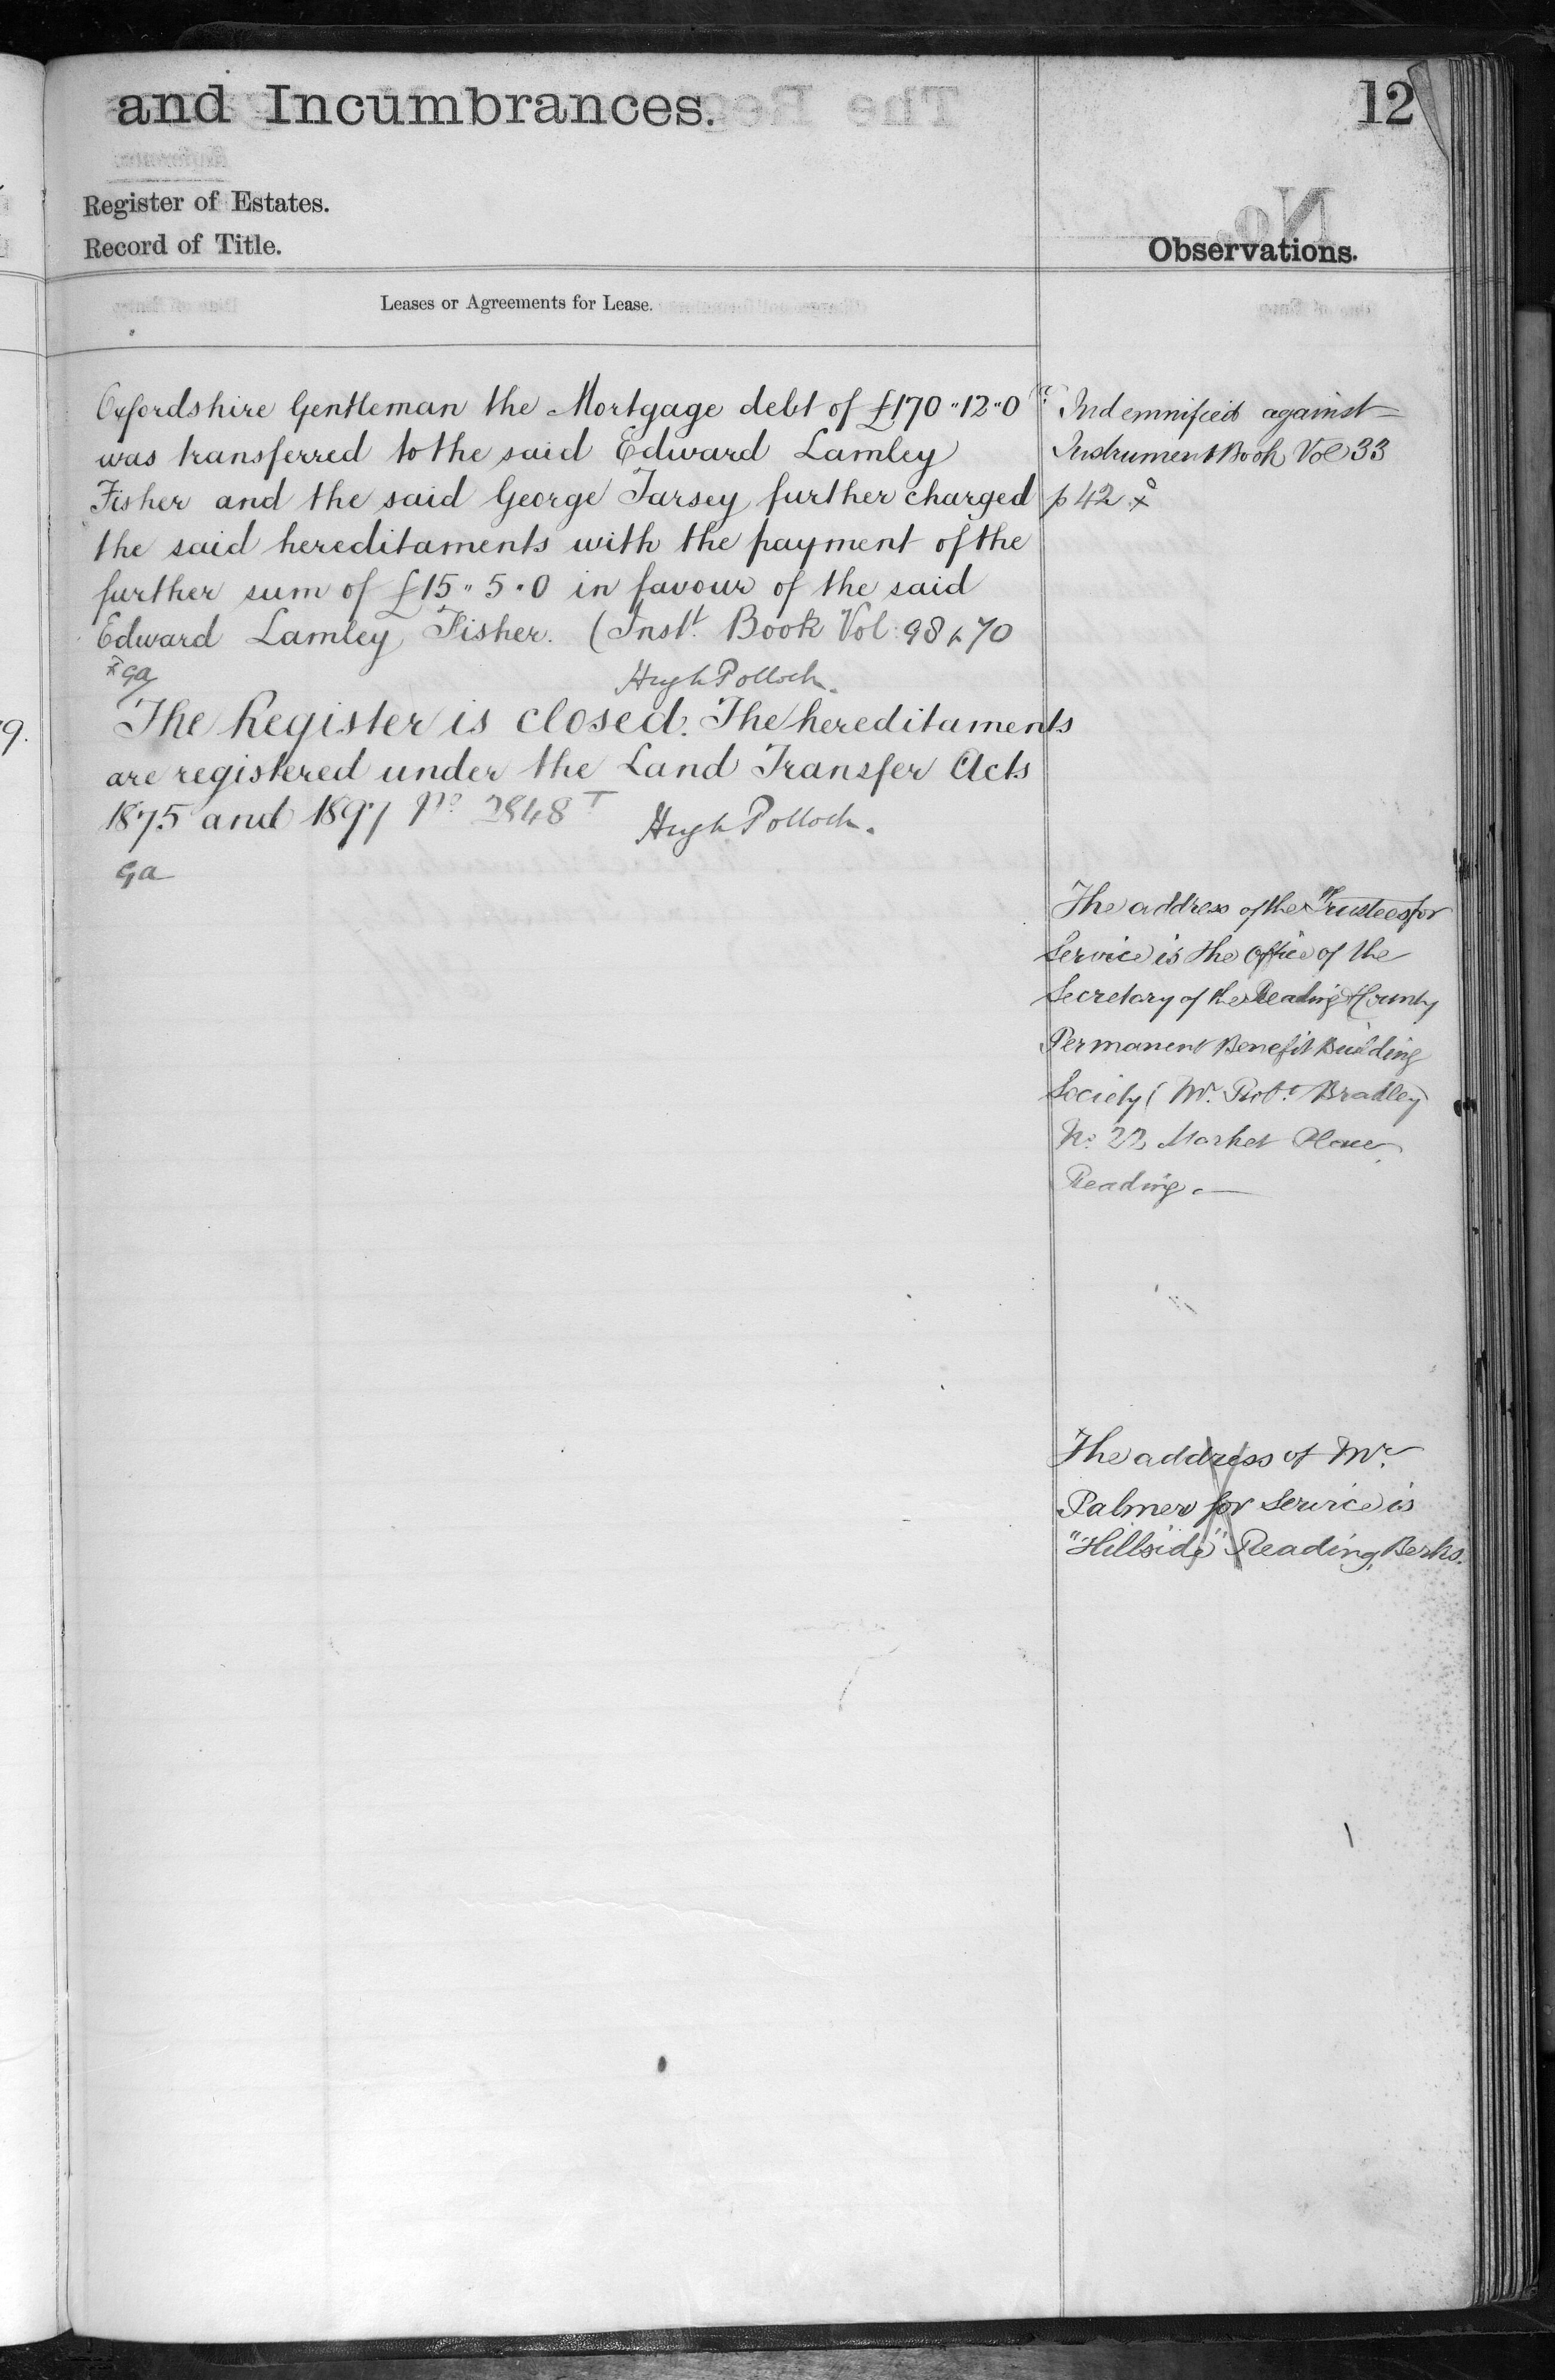 and Incumbrances.
12
Register of Estates.
Record of Title.
Observations.
Leases or Agreements for Lease.
Oxfordshire Gentleman the Mortgage debt of £170"12"0
was transferred to the said Edward Lamley
Fisher and the said George Tarsey further charged
the said hereditaments with the payment of the
further sum of £15"5"0 in favour of the said
Edward Lamley Fisher. (Inst. Book Vol: 98 p 70
Hugh Pollock.
The Register is closed. The hereditaments
are registered under the Land Transfer Acts
1875 and 1897 No 2848
Hugh Pollock.
Ga
9.
Indemnified against
Instrument Book Vol 33
p 42
The address of the Trustees for
Service is the Office of the
Secretary of the Reading & County
Permanent Benefit Building
Society (Mr. Robt. Bradley)
No. 22 Market Place
Reading.—
The address of Mr.
Palmer for Service is
"Hillside" Reading, Berks.